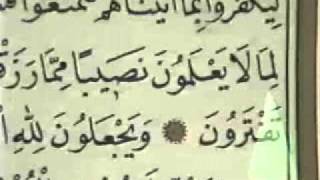 لِيَكْفُرُوا۟ بِمَآ ءَاتَيْنَٰهُمْ فَتَمَتَّعُوا۟
لِمَا لَا يَعْلَمُونَ نَصِيبًا مِّمَّا رَزَقْ
تَفْتَرُونَ وَيَجْعَلُونَ لِلَّهِ